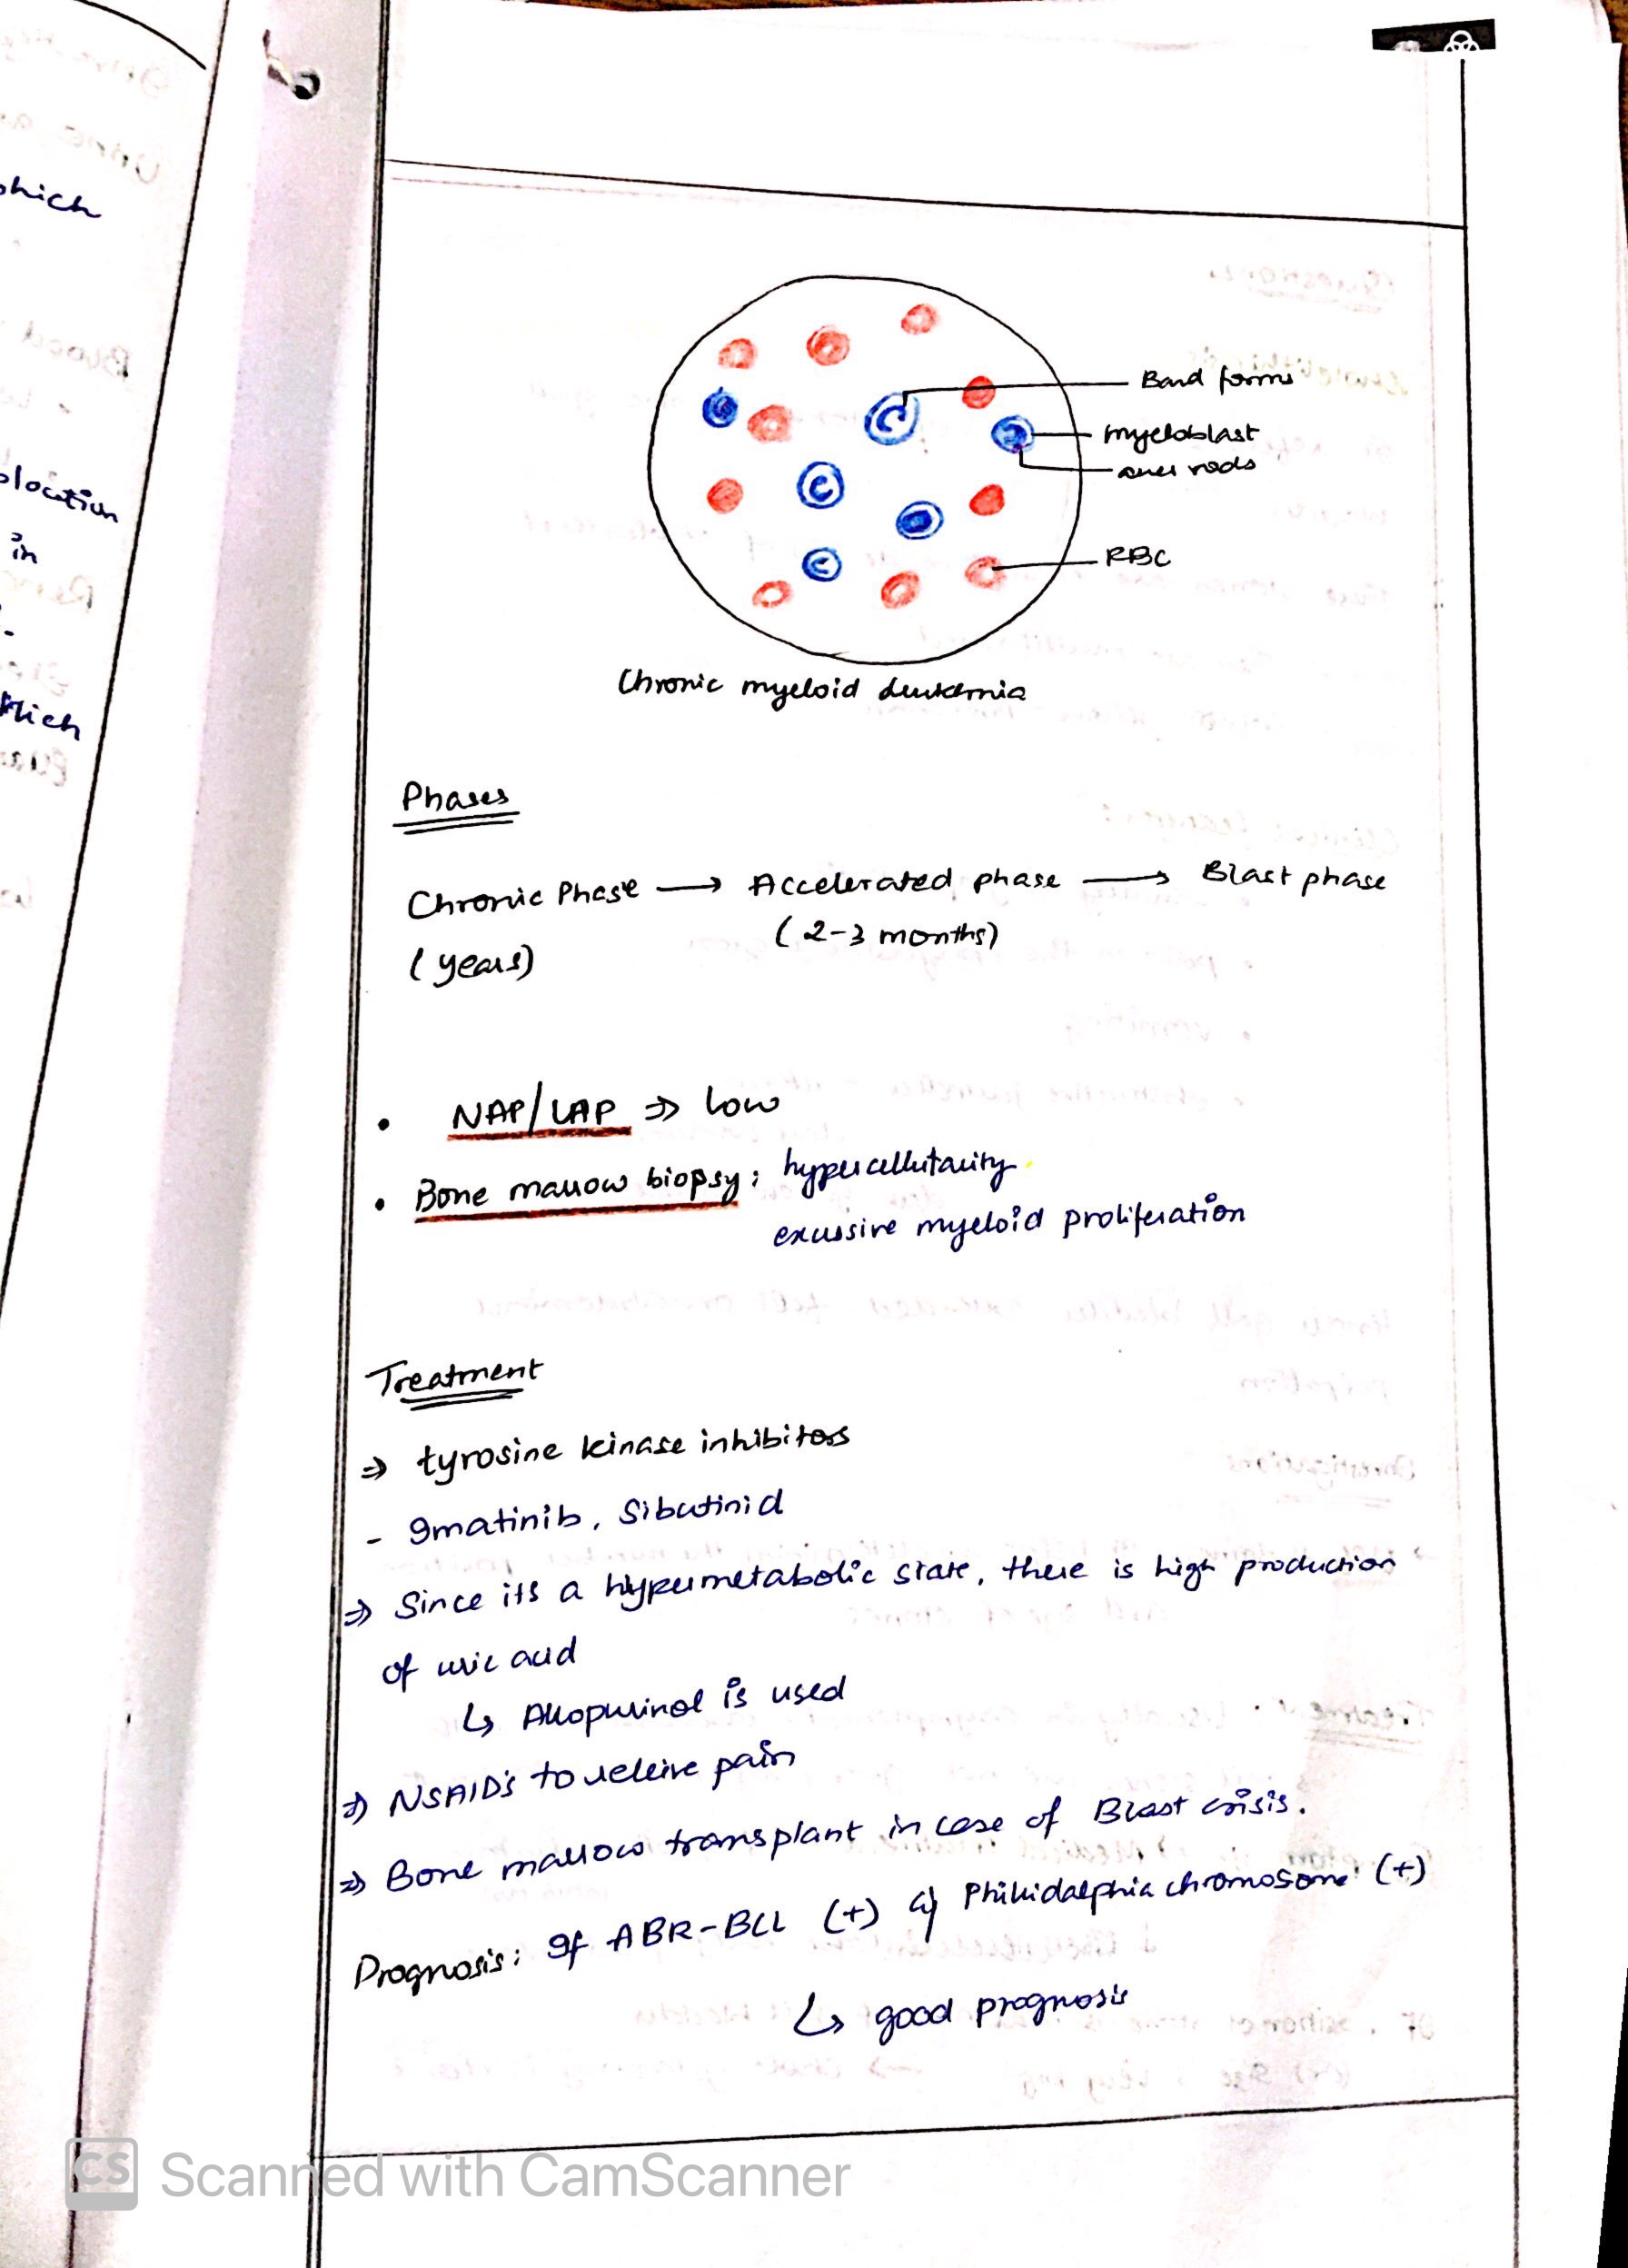 which
location
in
Band forms
myeloblast
auer rods
RBC
Chronic myeloid leukemia
Phases
Chronic Phase → Accelerated phase → Blast phase
(years)
(2-3 months)
• NAP/LAP ⇒ low
• Bone marrow biopsy: hypercellularity
excessive myeloid proliferation
Treatment
⇒ tyrosine kinase inhibitors
- Imatinib, Sibutinid
⇒ Since its a hypermetabolic state, there is high production
of uric acid
↳ Allopurinol is used
⇒ NSAID's to releive pain
⇒ Bone marrow transplant in case of Blast crisis.
Prognosis: If ABR-BCL (+) Philidalphia chromosome (+)
↳ good prognosis
CS Scanned with CamScanner